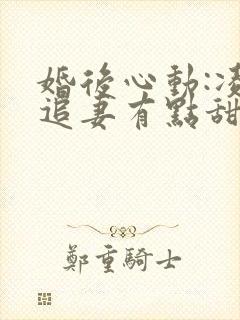 婚後心動:凌
追妻有點甜
鄭重騎士